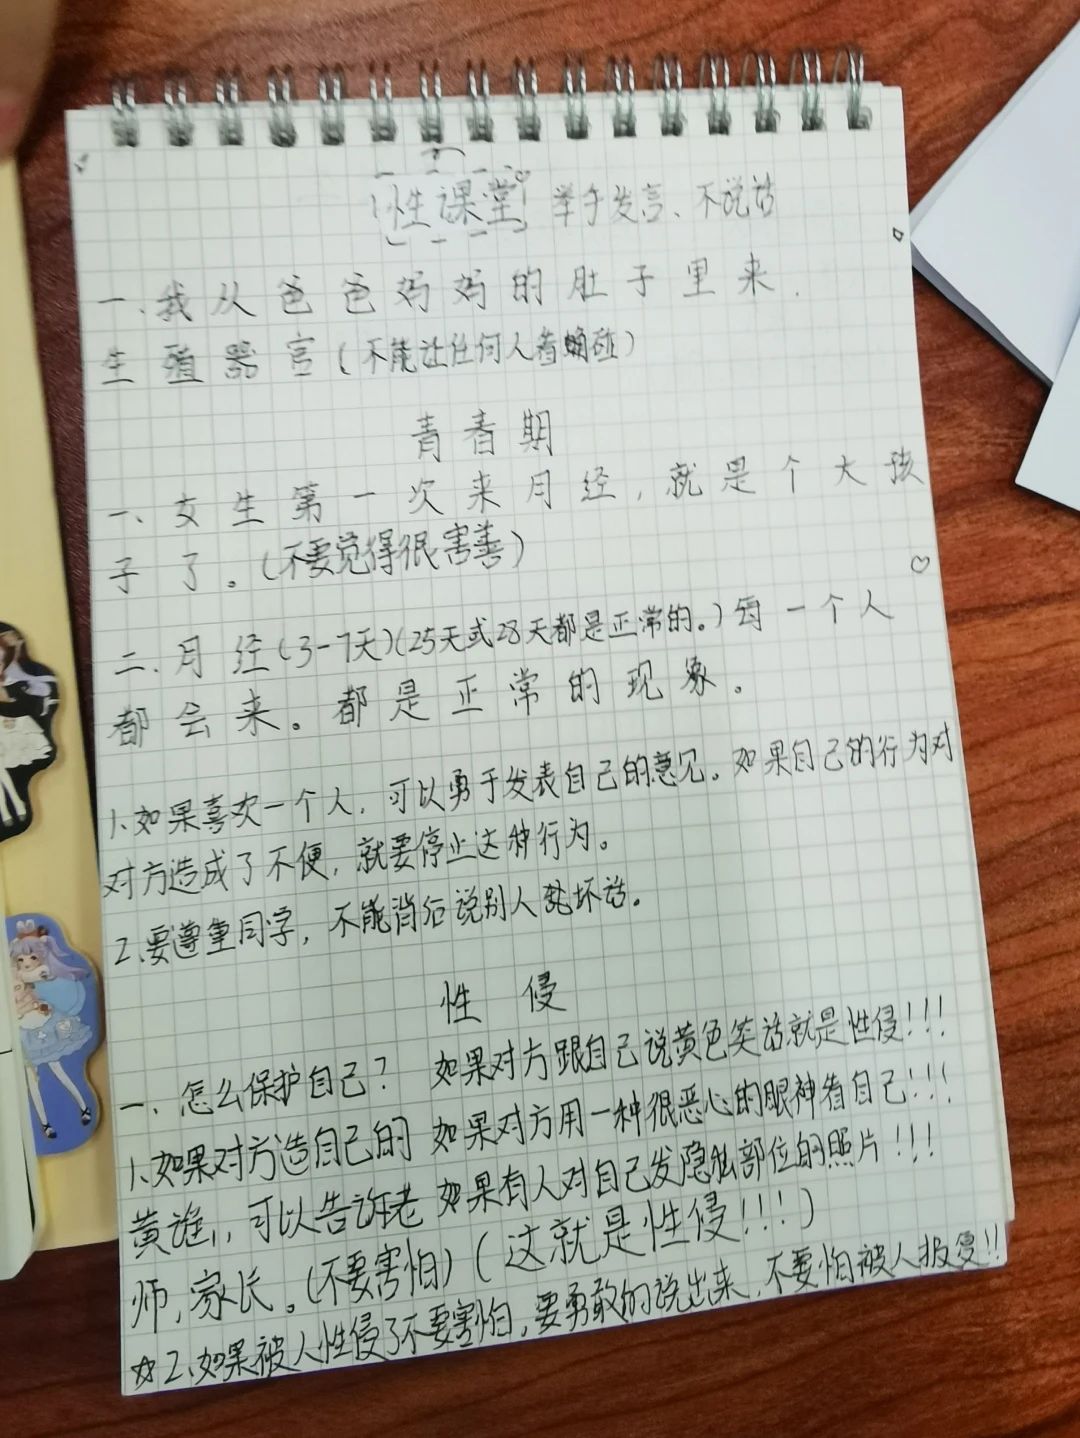 性课堂 举手发言、不说话
一.我从爸爸妈妈的肚子里来.
生殖器官(不能让任何人看触碰)
青春期
一、女生第一次来月经,就是个大孩
子了。(不要觉得很害羞)
二.月经(3-7天)(25天或28天都是正常的。)每一个人
都会来。都是正常的现象。
1、如果喜欢一个人,可以勇于发表自己的意见。如果自己的行为对
对方造成了不便,就要停止这种行为。
2、要遵重同学,不能背后说别人坏话。
性侵
一、怎么保护自己? 如果对方跟自己说黄色笑话就是性侵!!!
1、如果对方造自己的 如果对方用一种很恶心的眼神看自己!!!
黄谣,可以告诉老 如果有人对自己发隐私部位的照片!!!
师,家长。(不要害怕)(这就是性侵!!!)
☆2、如果被人性侵了不要害怕,要勇敢的说出来,不要怕被人报复!!